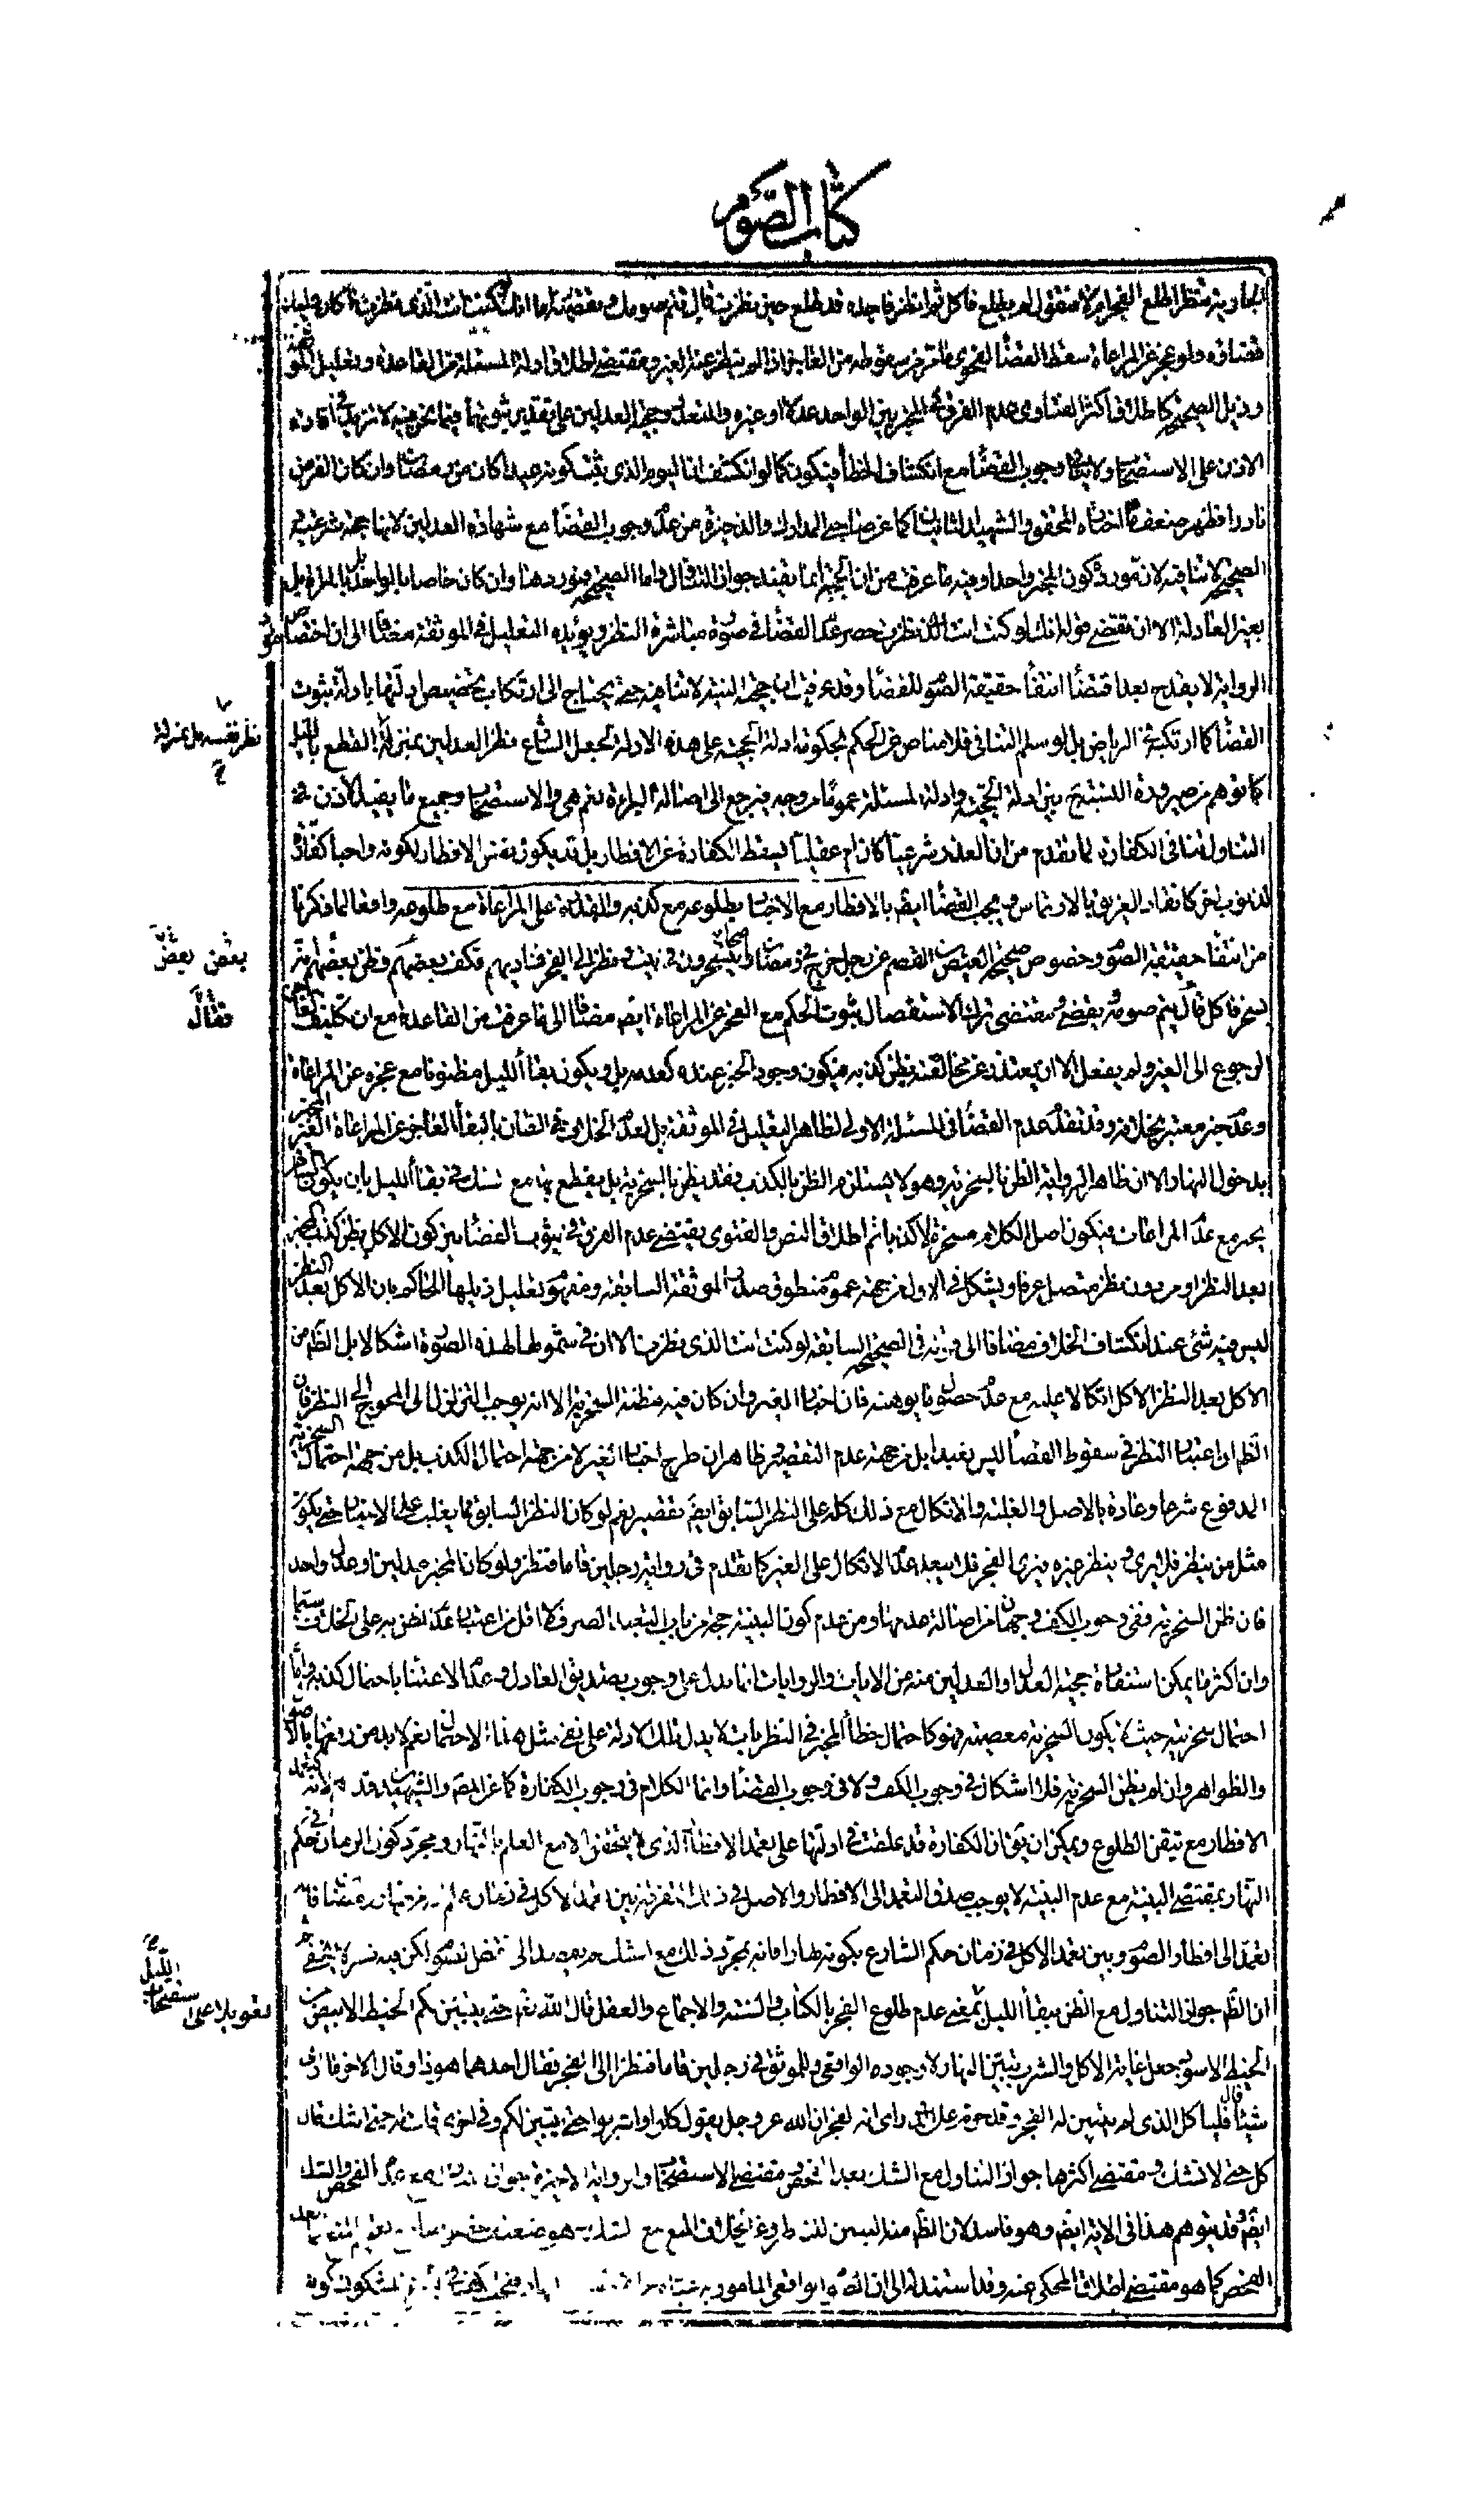 كتاب الصوم
الجارية تنظر اطلع الفجر ام لا فتقول لم يطلع فاكل ثم انظر فاجده قد طلع حين نظرت قال تتم صومك و تقضيه اما انك لو كنت انت الذى نظرت ما كان عليك
قضاؤه ولو عجز عن المراعاة سقط القضاء لفحوى ما تقدم من سقوطه من العاجز اذا لم يخبره الغير و مقتضى اطلاق ادلة المسئلة من القاعدة و تعليل الموثقة
و ذيل الصحيحة كاطلاق اكثر الفتاوى عدم الفرق فى المخبر بين الواحد عدلا او غيره والمتعدد وحجية العدلين على تقدير ثبوتها فيما نحن فيه لا تزيد فى افادة
الاذن على الاستصحاب ولا ينافى وجوب القضاء مع انكشاف الخطأ فيكون كما لو انكشف ان اليوم الذى ثبت كونه عيدا كان من رمضان وان كان الفرض
نادرا فظهر ضعف ما اختاره المحقق والشهيد الثانيان كما عن صاحبى المدارك والذخيرة من عدم وجوب القضاء مع شهادة العدلين لانها حجة شرعية
الصحيحة لا تنافيه لان مورده كون المخبر واحدا وفيه ما عرفت من ان الحجية انما يفيد جواز التناول واما الصحيحة فموردها وان كان خاصا بالواحد بل بالمراة بل
بغير العادلة الا ان مقتضى قوله انك لو كنت انت الذى نظرت حصر عدم القضاء فى صورة مباشرة النظر ويؤيده التعليل فى الموثقة مضافا الى ان اختصاص مورد
الرواية لا يقدح بعد اقتضاء انتفاء حقيقة الصوم للقضاء وقد عرفت ان حجية البينة لا تنافيه حتى يحتاج الى ارتكاب تخصيص ادلتها بادلة ثبوت
القضاء كما ارتكبه فى الرياض بل لو سلم التنافى فلا مناص عن الحكم بحكومة ادلة الحجية على هذه الادلة لجعل الشارع نظر العدلين بمنزلة القطع بالليل
نظر نفسه بل بمنزلة
كما توهم من صيرورة النسبة بين ادلة الحجية وادلة المسئلة عموما من وجه فيرجع الى اصالة البراءة نعم هى والاستصحاب وجميع ما يفيد الاذن فى
التناول تنافى الكفارة لما تقدم من ان العذر شرعيا كان ام عقليا يسقط الكفارة عن الافطار بل قد يكون نفس الافطار لكونه واجبا كفارة
لذنوب اخر كانقاذ الغريق بالارتماس و يجب القضاء ايضا بالافطار مع الاخبار بطلوعه مع ظن كذبه والقدرة على المراعاة مع طلوعه واقعا لما ذكرنا
من انتفاء حقيقة الصوم وخصوص صحيحة العيص بن القسم عن رجل خرج فى رمضان واصحابه يتسحرون فى بيت فنظر الى الفجر فناديهم فكف بعضهم و ظن بعضهم انه
بعض بعض
يسخر فاكل قال يتم صومه و يقضى و مقتضى ترك الاستفصال ثبوت الحكم مع العجز عن المراعاة ايضا مضافا الى ما عرفت من القاعدة مع ان تكليف العاجز
فقال
الرجوع الى الغير ولم يفعل الا ان يعتذر عن مخالفته بظن كذبه فيكون وجود الخبر عنده كعدمه بل و يكون بقاء الليل مظنونا مع عجزه عن المراعاة
وعدم خبر معتبر بخلافه وقد تقدم عدم القضاء فى المسئلة الاولى لظاهر التعليل فى الموثقة بل لعدم الخلاف فى الظان بالبقاء العاجز عن المراعاة الغير المخبر
بدخول النهار الا ان ظاهر الرواية الظن بالسخرية وهو لا يستلزم الظن بالكذب فقد يظن بالسخرية بل يقطع بها مع شك فى بقاء الليل بان يكون المخبر
يخبر مع عدم المراعات فيكون اصل الكلام مسخرة لا كذبا ثم اطلاق النص والفتوى يقتضى عدم الفرق فى ثبوت القضاء بين كون الاكل بظن كذب المخبر
بعد النظر او من دون نظر متصل عرفا و يشكل فى الاول من جهة عموم منطوق صدر الموثقة السابقة ومفهوم تعليل ذيلها الحاكم بان الاكل بعد النظر
ليس فيه شئ عند انكشاف الخلاف مضافا الى قوله فى الصحيحة السابقة لو كنت انت الذى نظرت الا ان فى شمولها لهذه الصورة اشكالا بل الظاهر من
الاكل بعد النظر الاكل اتكالا عليه مع عدم حصول ما يوهنه فان اخبار الغير وان كان فيه مظنة السخرية الا انه يوجب التزلزل المحوج الى النظر فان
الظاهر ان اعتبار النظر فى سقوط القضاء ليس تعبدا بل من جهة عدم التقصير وظاهر ان طرح اخبار الغير لا من جهة احتمال الكذب بل من جهة احتمال السخرية
المدفوع شرعا وعادة بالاصل والغلبة والاتكال مع ذلك كله على النظر السابق ايضا تقصير نعم لو كان النظر السابق مما يغلب على الاخبار حتى يكون
مثل من ينظر فلا يرى و ينظر غيره فيرى الفجر فلا يبعد عدم الاتكال على الغير كما تقدم فى رواية رجلين قاما فنظرا ولو كان المخبر عدلين او عدل واحد
فان ظن السخرية ففى وجوب الكف وجهان من اصالة عدمها ومن عدم كون البينة حجة من باب التعبد الصرف فلا اقل من اعتبار عدم الظن به على الخلاف سيما
وان اكثر ما يمكن استفادة حجية العدل او العدلين منه من الايات والروايات انما يدل على وجوب تصديق العادل و عدم الاعتناء باحتمال كذبه واما
احتمال سخريته حيث لا يكون السخرية معصية فهو كاحتمال خطأ المخبر فى النظريات لا يدل تلك الادلة على نفى مثل هذا الاحتمال نعم لا بد من دفعها بالاصول
والظواهر وان لم يظن السخرية فلا اشكال فى وجوب الكف ولا فى وجوب القضاء وانما الكلام فى وجوب الكفارة كما عن المصنف والشهيد قده لانه كتعمد
الافطار مع تيقن الطلوع ويمكن ان يقال ان الكفارة قد علقت فى ادلتها على تعمد الافطار الذى لا يتحقق الا مع العلم بالنهار و مجرد كون الزمان فى حكم
النهار بمقتضى البينة مع عدم البينة لا يوجب صدق التعمد الى الافطار والاصل فى ذلك التفرقة بين تعمد الاكل فى زمان
تعمد الى افطار الصوم و بين تعمد الاكل فى زمان حكم الشارع بكونه نهارا فانه بمجرد ذلك مع الشك
ان الظاهر جواز التناول مع الظن ببقاء الليل بمعنى عدم طلوع الفجر بالكتاب والسنة والاجماع والعقل قال الله تعالى حتى يتبين لكم الخيط الابيض من
الليل
تعويلا على استصحاب
الخيط الاسود جعل غاية الاكل والشرب تبين النهار لا وجوده الواقعى وللموثق فى رجلين قاما فنظرا الى الفجر فقال احدهما هو ذا وقال الاخر ما ارى
شيئا قال فلياكل الذى لم يتبين له الفجر وقد حرم على الذى راى انه الفجر ان الله عز وجل يقول كلوا واشربوا حتى يتبين لكم وفى اخرى قلت اكل حتى اشك قال
كل حتى لا تشك و مقتضى اكثرها جواز التناول مع الشك بعد الفحص و مقتضى الاستصحاب والرواية الاخيرة جوازه مع عدم الفحص والشك
ايضا وقد يتوهم هذا فى الاية ايضا وهو فاسد لان الظاهر منه
الفحص كما هو مقتضى اطلاق المحكى عنه وقد استند فى ذلك الى ان الصوم الواقعى المأمور به